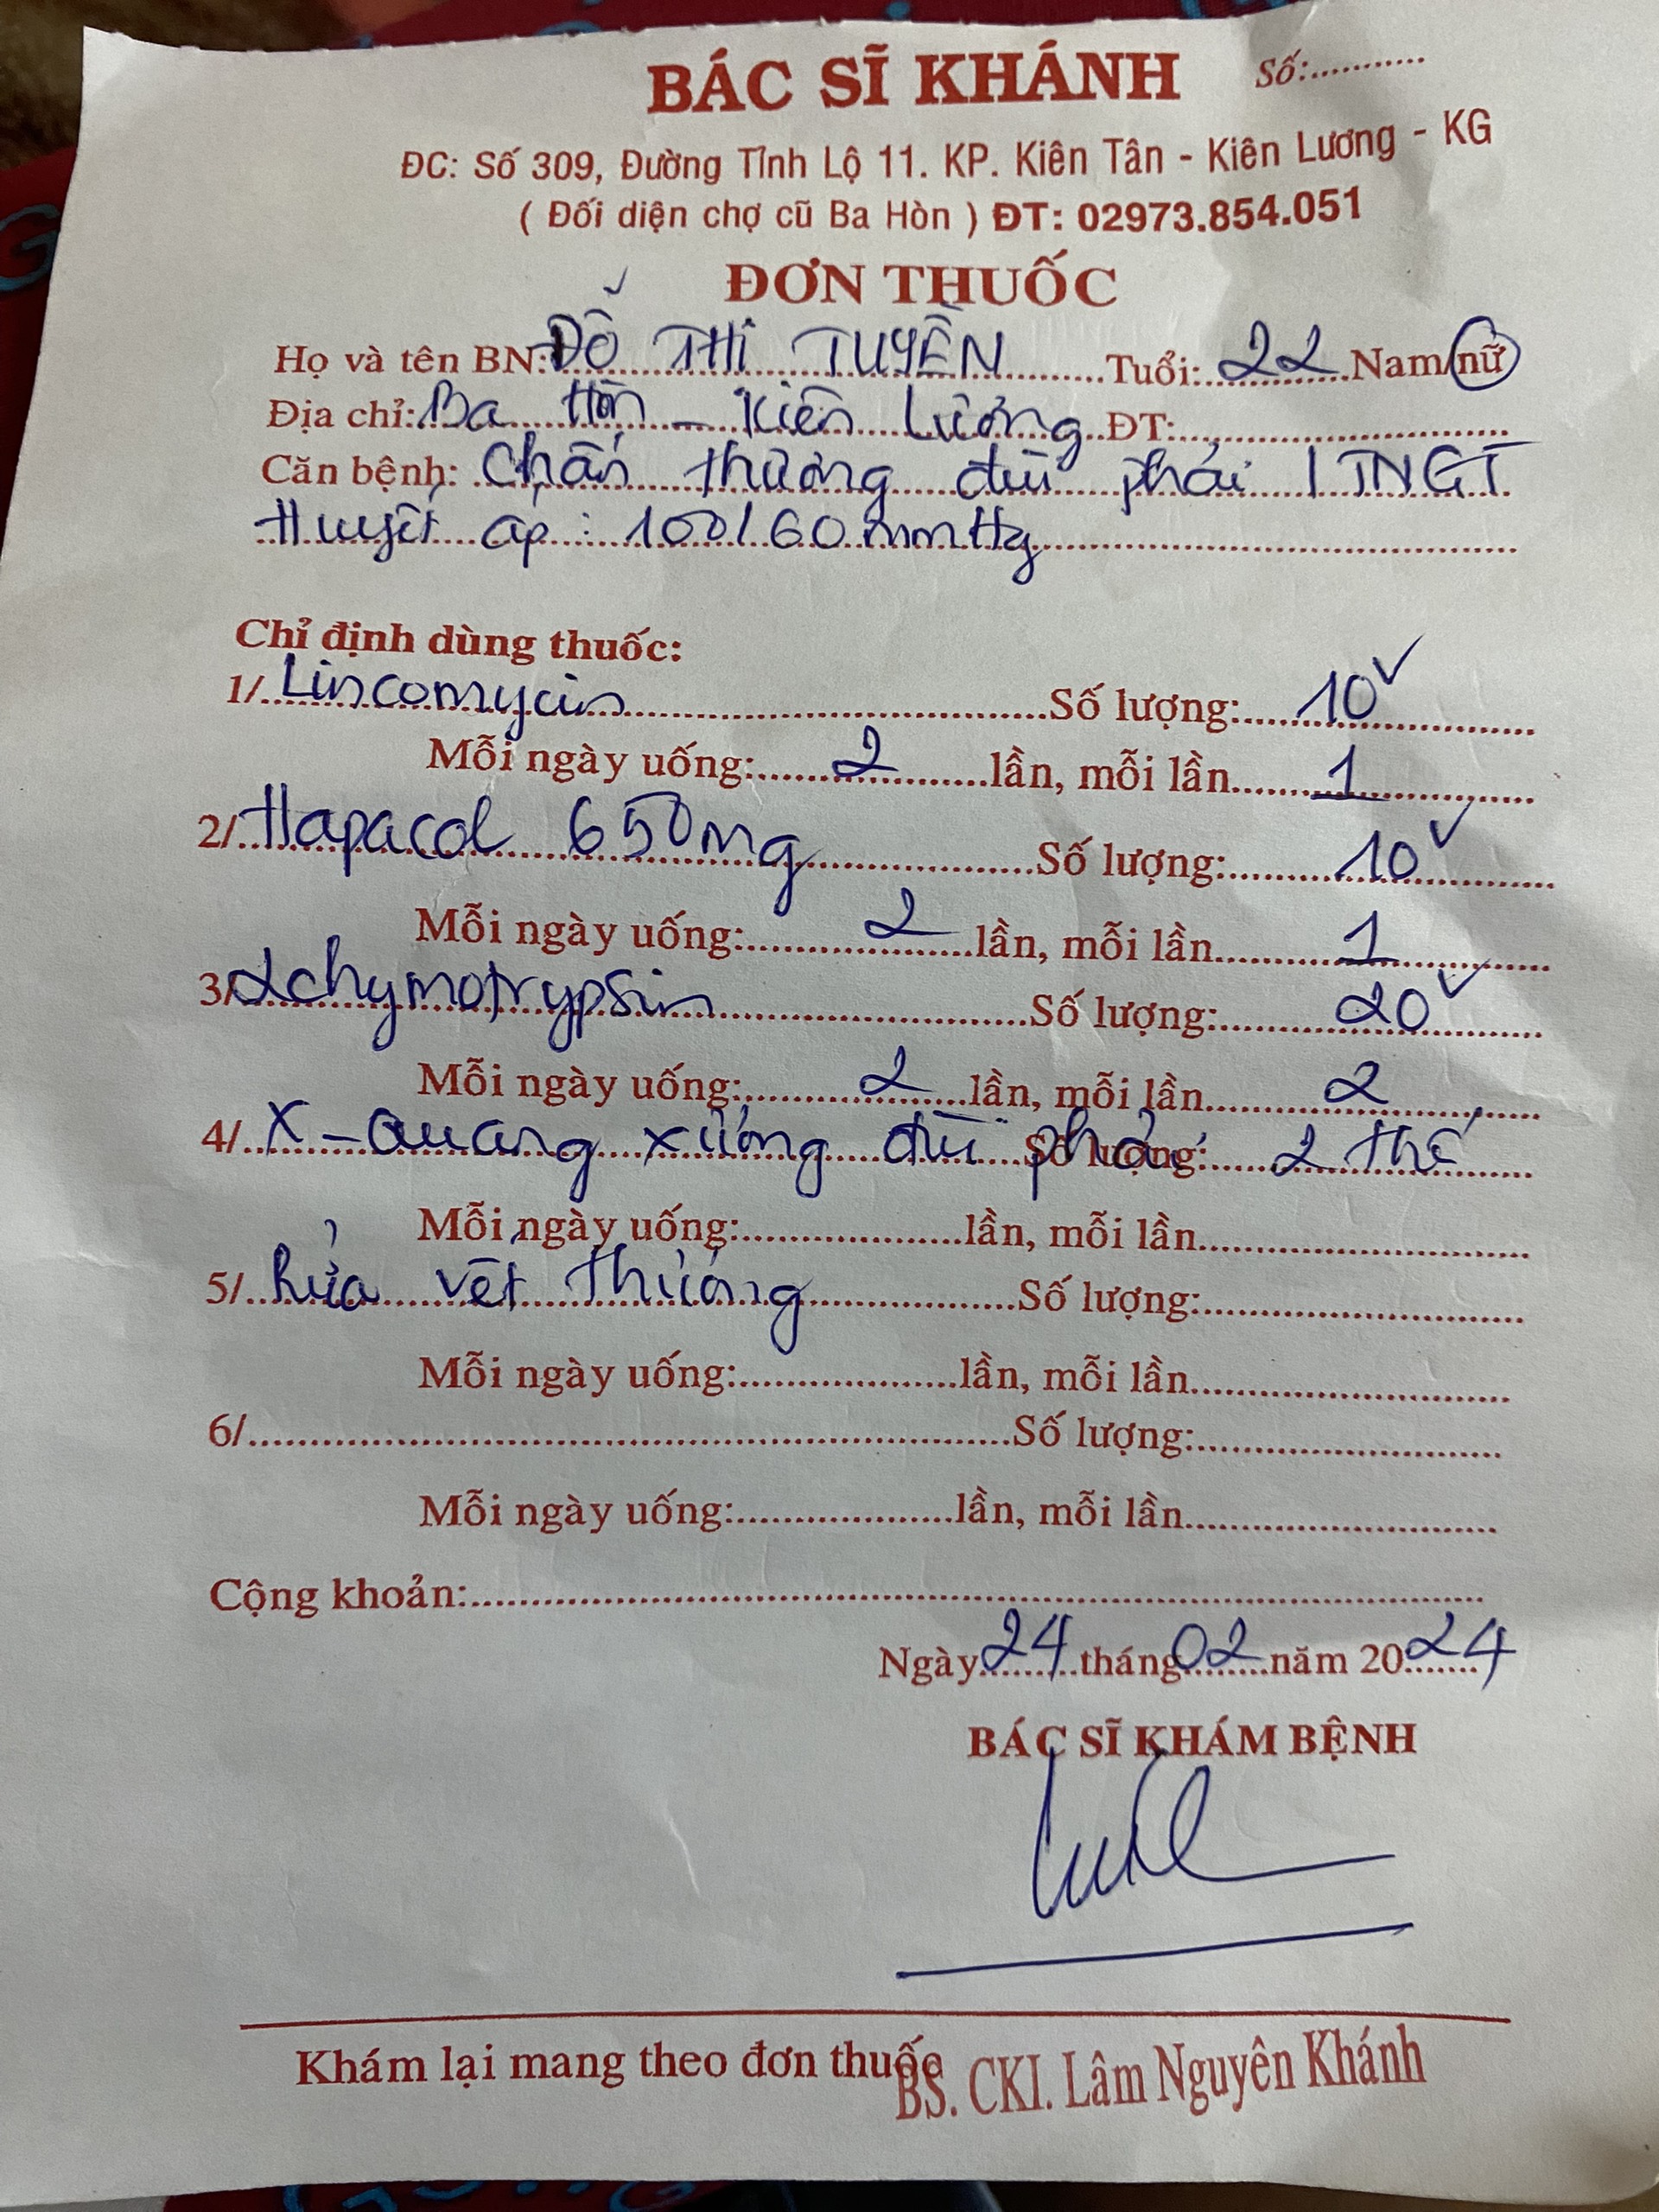 BÁC SĨ KHÁNH Số:...........
ĐC: Số 309, Đường Tỉnh Lộ 11. KP. Kiên Tân - Kiên Lương - KG
( Đối diện chợ cũ Ba Hòn ) ĐT: 02973.854.051
ĐƠN THUỐC
Họ và tên BN: ĐỖ THỊ TUYỀN Tuổi: 22 Nam/nữ
Địa chỉ: Ba Hòn - Kiên Lương ĐT:
Căn bệnh: Chấn thương đùi phải / TNGT
Huyết áp : 100/60 mmHg
Chỉ định dùng thuốc:
1/ Lincomycin Số lượng: 10
Mỗi ngày uống: 2 lần, mỗi lần 1
2/ Hapacol 650mg Số lượng: 10
Mỗi ngày uống: 2 lần, mỗi lần 1
3/ αchymotrypsin Số lượng: 20
Mỗi ngày uống: 2 lần, mỗi lần 2
4/ X-Quang xương đùi phải Số lượng: 2 thế
Mỗi ngày uống: lần, mỗi lần
5/ Rửa vết thương Số lượng:
Mỗi ngày uống: lần, mỗi lần
6/ Số lượng:
Mỗi ngày uống: lần, mỗi lần
Cộng khoản:
Ngày 24 tháng 02 năm 2024
BÁC SĨ KHÁM BỆNH
Khám lại mang theo đơn thuốc
BS. CKI. Lâm Nguyên Khánh